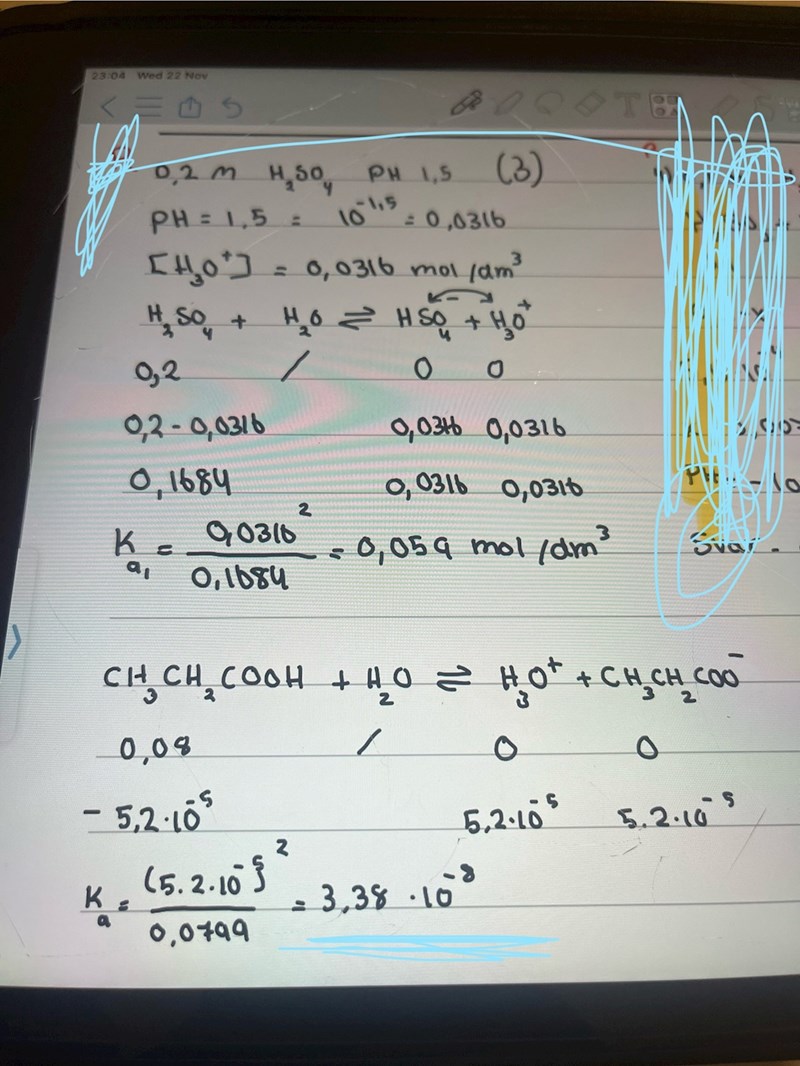 23:04 Wed 22 Nov
0,2 m H₂SO₄ PH 1,5 (3)
PH = 1,5 = 10^-1,5 = 0,0316
[H₃O⁺] = 0,0316 mol/dm³
H₂SO₄ + H₂O ⇌ HSO₄⁻ + H₃O⁺
0,2 / 0 0
0,2 - 0,0316 0,0316 0,0316
0,1684 0,0316 0,0316
Ka₁ = 0,0316² / 0,1684 = 0,059 mol/dm³
Svar
CH₃CH₂COOH + H₂O ⇌ H₃O⁺ + CH₃CH₂COO⁻
0,08 / 0 0
- 5,2·10⁻⁵ 5,2·10⁻⁵ 5.2·10⁻⁵
Ka = (5.2·10⁻⁵)² / 0,0799 = 3,38 ·10⁻⁸